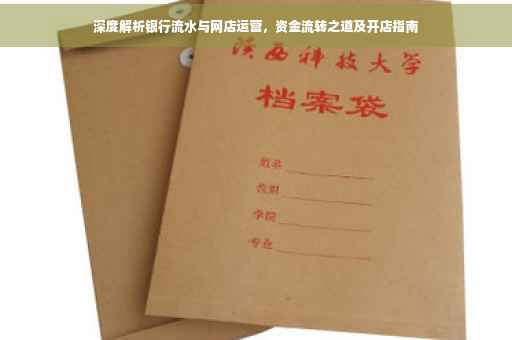 深度解析银行流水与网店运营，资金流转之道及开店指南
陕西科技大学
档案袋
姓名
学院
专业